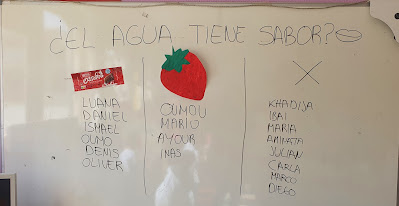 ¿EL AGUA TIENE SABOR?
LUANA
DANIEL
ISMAEL
OUMO
DENIS
OLIVER
OUMOU
MARIO
AYOUR
INAS
KHADIJA
IBAI
MARIA
AMINATA
JULIAN
CARLA
MARCO
DIEGO